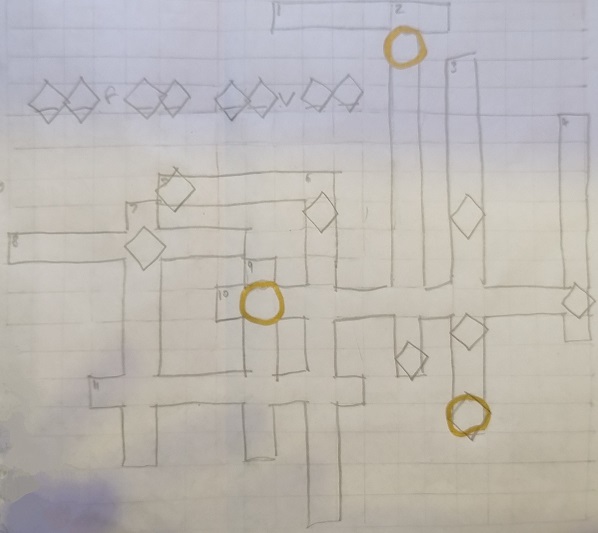 1 2
3
R V
4
5 6
7
8
9
10
11